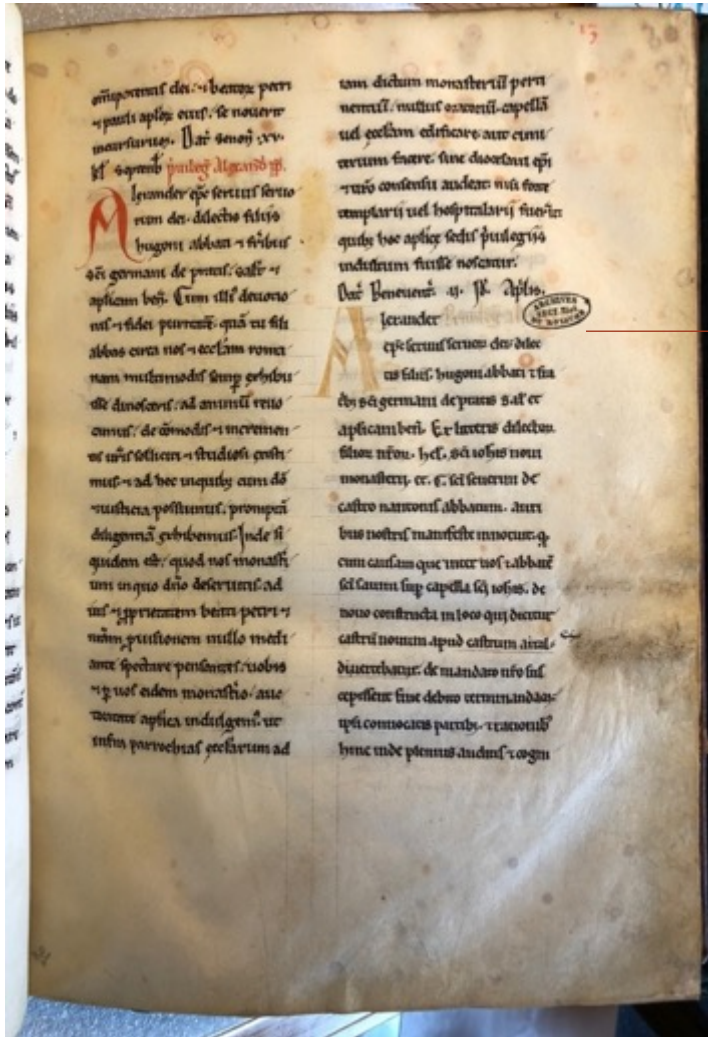 13
omipotentis dei. ⁊ beatoꝝ petri
⁊ pauli aplõꝝ eius. se nouerit
incursurum. Dat̃ Senon̄ .xv.
kl̃ septemb̃ p̃uileg̃ Alexandr̃ pp̃.
Alexander ep̃c seruus seruo
rum dei. dilectis filiis
hugoni abbati ⁊ fr̃ibus
sc̃i germani de pratis. salt̃ ⁊
aplicam ben̄. Cum illi᷒ deuotio
nis ⁊ fidei puritatē. quā tu fili
abbas circa nos ⁊ eccl̃am roma
nam multimodis semp̱ exhibu
isse dinosceris. ad animū reuo
camus. de cõmodis ⁊ incremen
tis ur̃is solliciti ⁊ studiosi existi
mus. ⁊ ad hec inquibꝫ cum dō
⁊ iusticia possumus. promptā
diligentiā exhibemus. Inde si
quidem est. quod nos monast̃i
um in quo dño deseruitis. ad
ius ⁊ ꝓprietatem beati petri ⁊
nr̃am ꝓuisionem nullo medi
ante spectare pensantes. uobis
⁊ ꝑ uos eidem monast̃io. auc
toritate aplica indulgem᷒. ut
infra parrochias eccl̃arum ad
iam dictum monasteriū perti
nentiū. nullus oratoriū. capellā
uel eccl̃am edificare. aut cimi
terium facere. sine diocesani ep̃i
⁊ ur̃o consensu audeat. nisi forte
templarii uel hospitalarii fuerint
quibꝫ hoc aplice sedis p̃uilegiis
indultum fuisse noscatur.
Dat̃ Beneuent̃. .ii. Id̃. Aplis.
Alexander
ep̃c seruus seruoꝝ dei. dilec
tis filiis. hugoni abbati ⁊ fra
tribꝫ sc̃i germani de pratis sal̃ et
aplicam ben̄. Ex litteris dilectoꝝ
filioꝝ nr̃oꝝ. hel̃. sc̃i ioh̃is noui
monasterii. et. G. sc̃i seuerini de
castro nantonis abbatum. auri
bus nostris manifeste innotuit. ꝙ
cum causam que inter uos ⁊ abbatē
sc̃i sauini sup̱ capella sc̃i ioh̃is. de
nouo constructa in loco qui dicitur
castrū nouum apud castrum airal.
diuertebatur. de mandato nr̃o sus
cepissent fine debito terminandam.
ipsi conuocatis partibꝫ. ⁊ rationib᷒
hinc inde plenius auditis ⁊ cogni
ARCHIVES